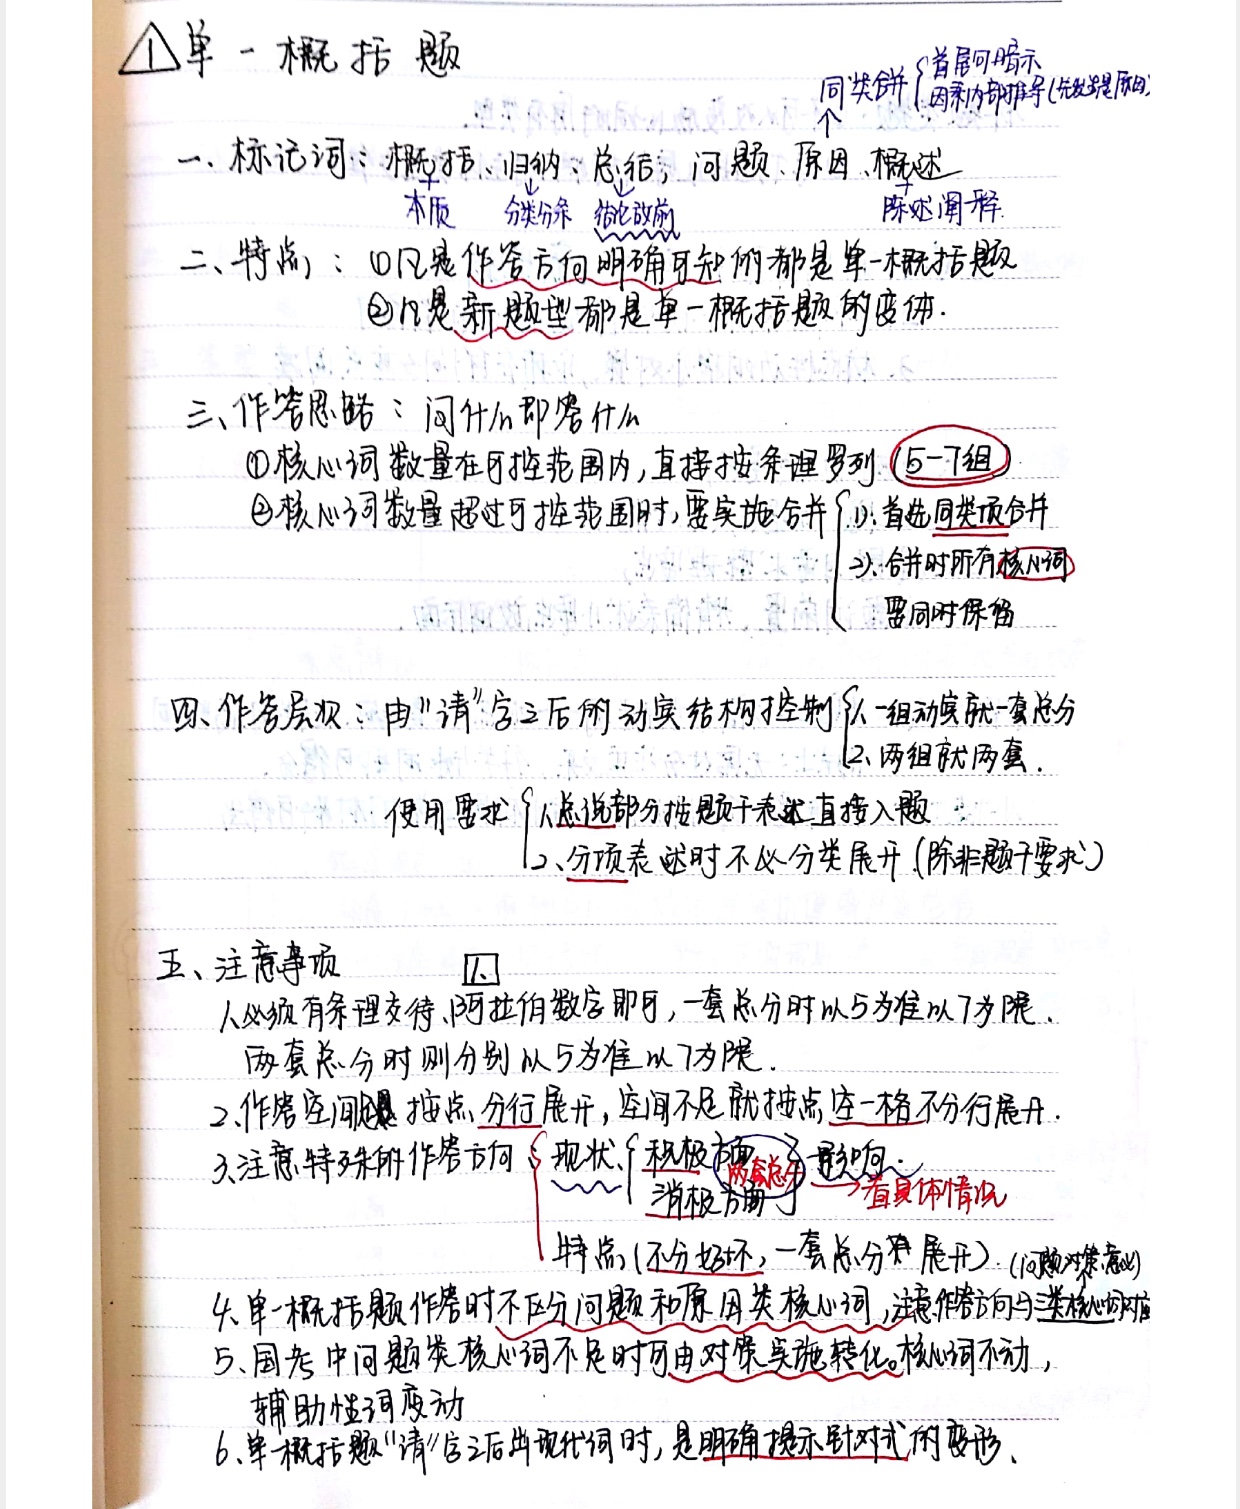 ① 单一概括题
同类合并 { 首尾可暗示
因果内部推导(先发生是原因)
一、标记词：概括、归纳、总结；问题、原因、概述
本质 分类分条 结论放前 陈述阐释
二、特点：①凡是作答方向明确可知的都是单一概括题
②凡是新题型都是单一概括题的变体.
三、作答思路：问什么即答什么
①核心词数量在可控范围内,直接按条理罗列 (5-7组)
②核心词数量超过可控范围时,要实施合并 { 1).首选同类项合并
2).合并时所有核心词
要同时保留
四、作答层次：由"请"字之后的动宾结构控制 { 1.一组动宾就一套总分
2、两组就两套.
使用要求 { 1.总说部分按题干表述直接入题
2、分项表述时不必分类展开(除非题干要求)
五、注意事项 1、
1.必须有条理交待,阿拉伯数字即可,一套总分时以5为准以7为限.
两套总分时则分别以5为准以7为限.
2.作答空间 按点分行展开,空间不足就按点空一格不分行展开.
3.注意特殊的作答方向 { 现状 { 积极方面 } 影响.
两套总分 →看具体情况
消极方面
特点(不分好坏,一套总分 展开).(问题对策意义)
4.单一概括题作答时不区分问题和原因类核心词,注意作答方向与三类核心词对应
5、国考中问题类核心词不足时可由对策实施转化。核心词不动,
辅助性词变动
6、单一概括题"请"字之后出现代词时,是明确提示针对式的变形.